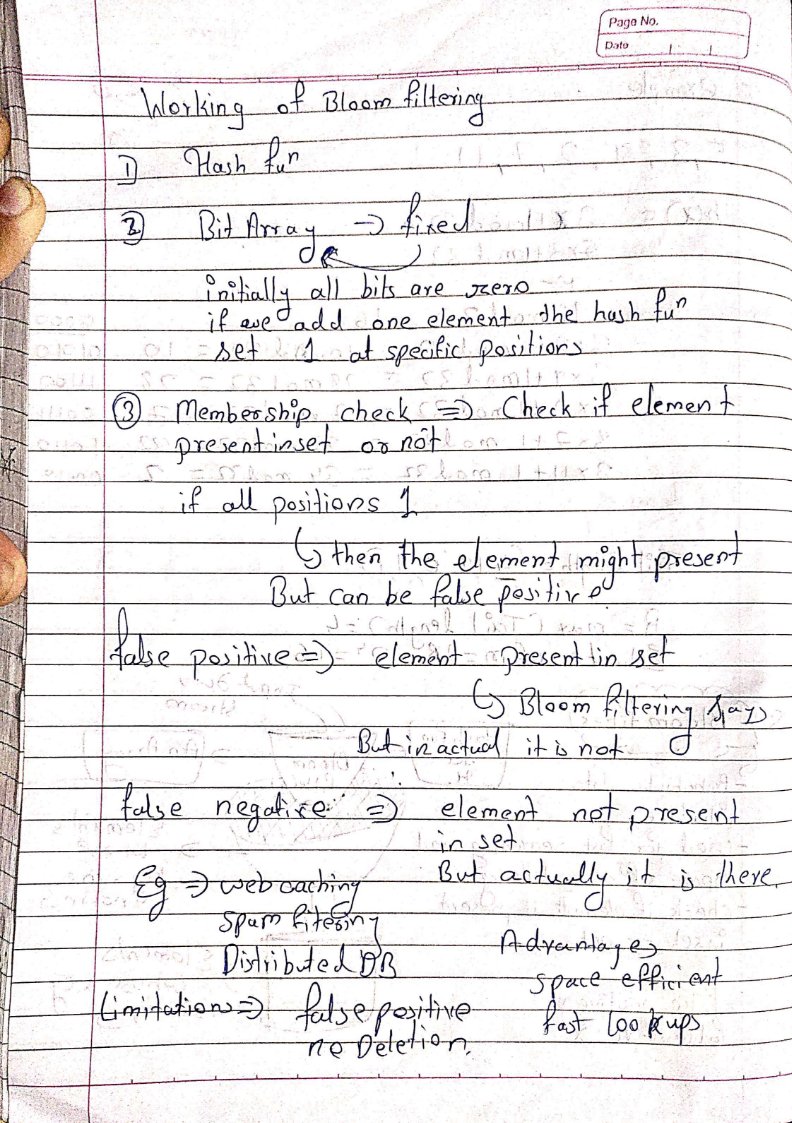 Page No.
Date
Working of Bloom filtering
1) Hash fuⁿ
2) Bit Array → fixed
initially all bits are zero
if we add one element the hash fuⁿ
set 1 at specific positions
3) Membership check ⇒ Check if element
present in set or not
if all positions 1
↳ then the element might present
But can be false positive
false positive ⇒ element present in set
↳ Bloom filtering says
But in actual it is not
false negative ⇒ element not present
in set
But actually it is there.
Eg ⇒ web caching
spam fitering
Distributed DB
Advantages
space efficient
fast lookups
Limitations ⇒ false positive
no Deletion.